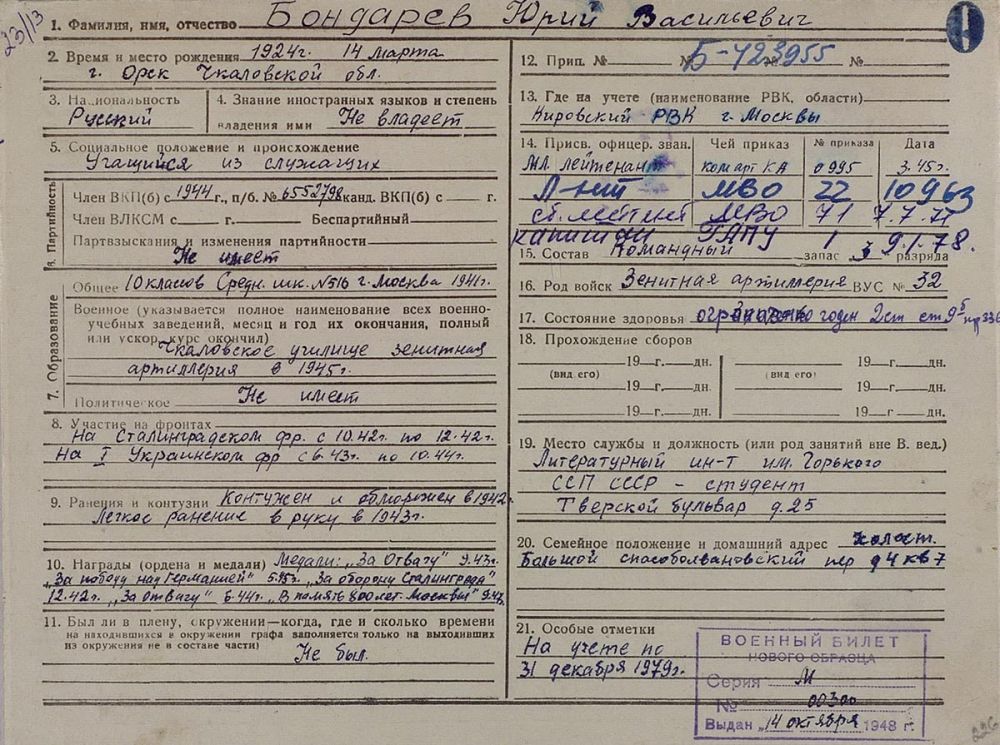 23/13
1. Фамилия, имя, отчество Бондарев Юрий Васильевич
2. Время и место рождения 1924г. 14 марта
г. Орск Чкаловской обл.
3. Национальность
Русский
4. Знание иностранных языков и степень
владения ими Не владеет
5. Социальное положение и происхождение
Учащийся из служащих
6. Партийность
Член ВКП(б) с 1944 г., п/б. № 6552798 канд. ВКП(б) с г.
Член ВЛКСМ с г. Беспартийный
Партвзыскания и изменения партийности
Не имеет
7. Образование
Общее 10 классов Средн. шк. №516 г. Москва 1941г.
Военное (указывается полное наименование всех военно-
учебных заведений, месяц и год их окончания, полный
или ускор. курс окончил)
Чкаловское училище зенитная
артиллерия в 1945г.
Политическое Не имеет
8. Участие на фронтах
На Сталинградском фр. с 10.42г. по 12.42г.
На I Украинском фр с 6.43г. по 10.44г.
9. Ранения и контузии Контужен и обморожен в 1942г
Легкое ранение в руку в 1943г.
10. Награды (ордена и медали) Медали: „За Отвагу" 9.43г.
„За победу над Германией" 5.45г. „За оборону Сталинграда"
12.42г. „За отвагу" 6.44г. „В память 800 лет. Москвы" 9.47г.
11. Был ли в плену, окружении—когда, где и сколько времени
на находившихся в окружении графа заполняется только на выходивших
из окружения не в составе части)
Не был.
12. Прип. № Б-423955 № №
13. Где на учете (наименование РВК, области)
Кировский РВК г. Москвы
14. Присв. офицер. зван. Чей приказ № приказа Дата
Мл. лейтенант комарт КА 0995 3.45г.
Л-нт МВО 22 10 9 63
ст. лейтенант МВО 71 7.7.71
капитан ГлПУ 1 9.1.78.
15. Состав Командный запас 3 разряда
16. Род войск Зенитная артиллерия ВУС № 32
17. Состояние здоровья ограниченно годен 2ст ст. 9б пр 336
18. Прохождение сборов
19 г. дн. 19 г. дн.
(вид его) (вид его)
19 г. дн. 19 г. дн.
19 г. дн. 19 г. дн.
19. Место службы и должность (или род занятий вне В. вед.)
Литературный ин-т им. Горького
ССП СССР – студент
Тверской бульвар д. 25
20. Семейное положение и домашний адрес холост.
Большой спасоболвановский пер д 4 кв 7
21. Особые отметки
На учете по
31 декабря 1979г.
ВОЕННЫЙ БИЛЕТ
НОВОГО ОБРАЗЦА
Серия М
№ 00300
Выдан „14 октября 1948 г.
226